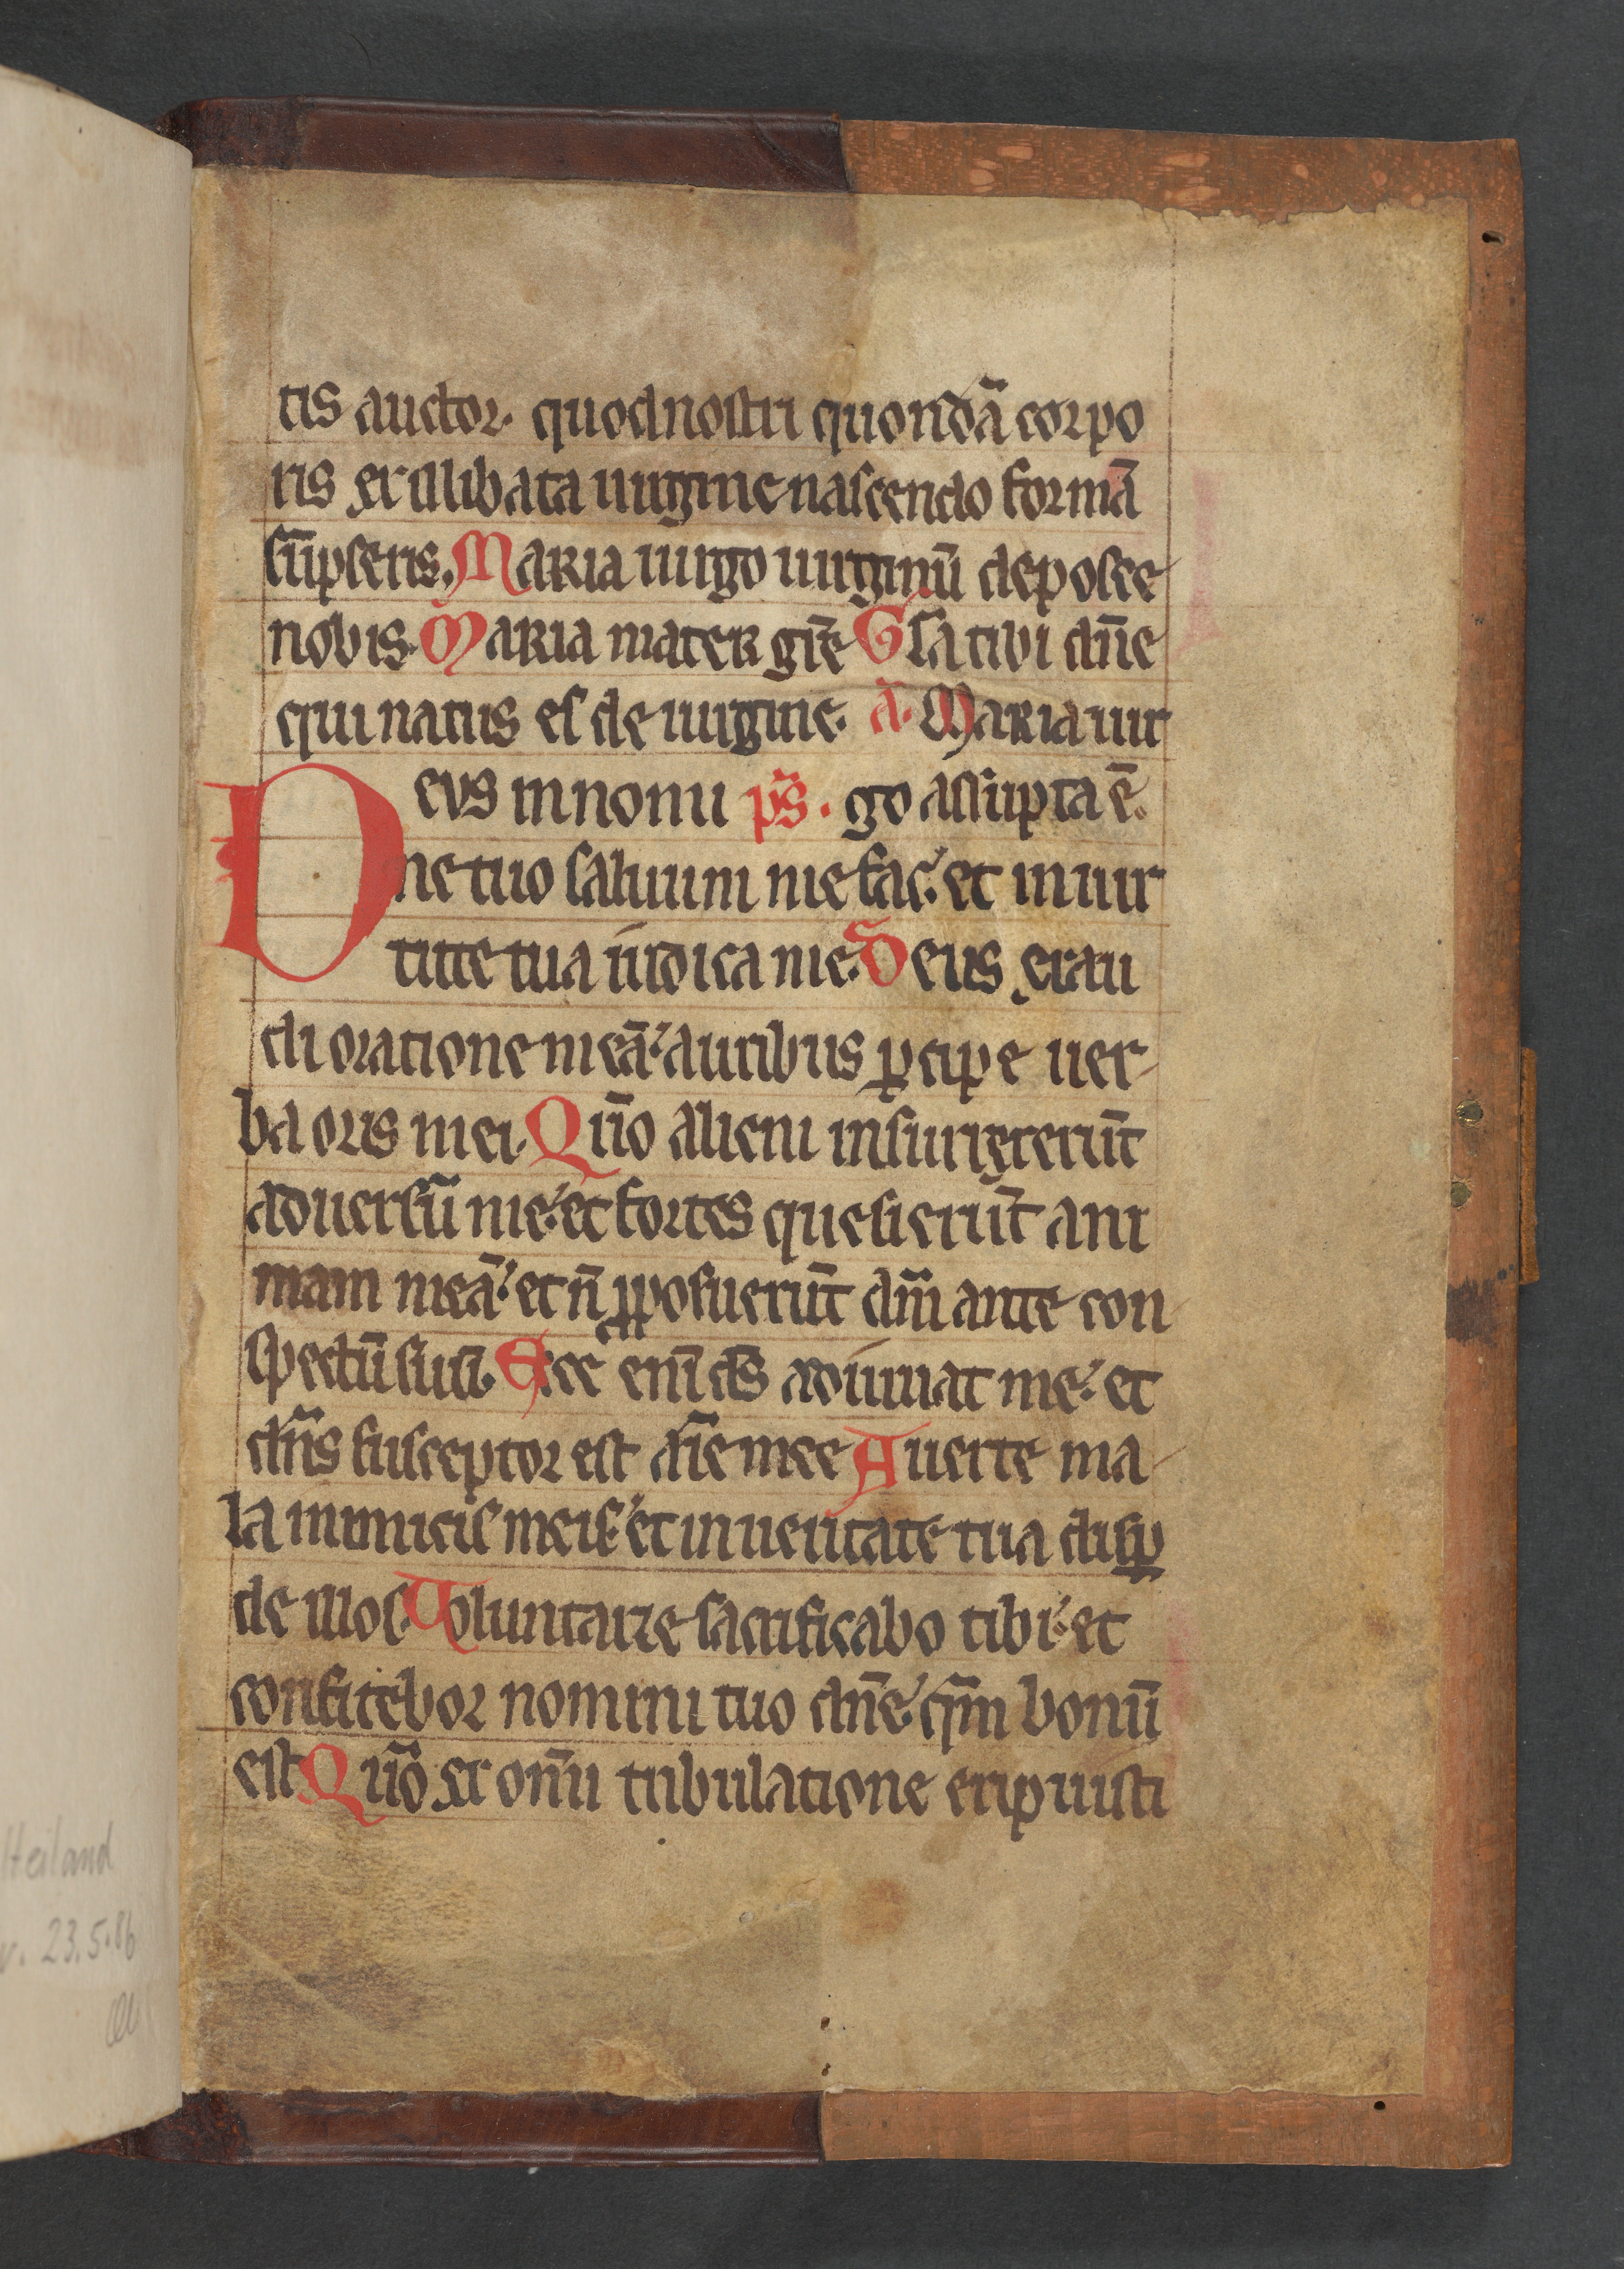 tis auctor. quod nostri quondā corpo
ris ex illibata uirgine nascendo formā
sūpseris. Maria uirgo uirginū deposce
nobis. Maria mater grē Gła tibi dn̄e
qui natus es de uirgine. a͞. Maria uir
Deus in nomi ps̄. go assūpta ē.
ne tuo saluum me fac. et in uir
tute tua iudica me. Deus exau
di oratione meā. auribus ꝑcipe uer-
ba oris mei. Qm̄o alieni insurrexerūt
aduersū me. et fortes quesierūt ani
mam meā. et n̄ ꝓposuerūt dm̄ ante con
spectū suū. Ecce enī ds̄ adiuuat me. et
dn̄s susceptor est aīe mee Auerte ma-
la inimicis meis. et in ueritate tua disꝑ
de illos. Voluntarie sacrificabo tibi. et
confitebor nomini tuo dn̄e. qm̄ bonū
est Qm̄o ex om̄i tribulatione eripuisti
Heiland
v. 23.5.86